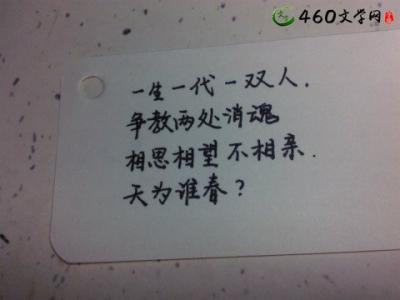 460文学网
一生一代一双人.
争教两处消魂
相思相望不相亲.
天为谁春?